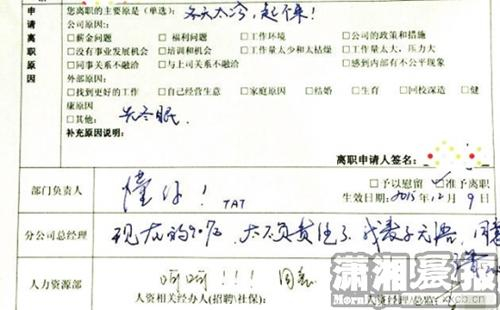 申请离职原因
您离职的主要原是(单选): 冬天太冷,起不来!
公司原因:
□薪金问题 □福利问题 □工作环境 □公司的政策和措施
□没有事业发展机会 □培训和机会 □工作量太少和太枯燥 □工作量太大,压力大
□同事关系不融洽 □与上司关系不融洽 □感到内部有不公平现象
外部原因:
□找到更好的工作 □自己经营生意 □家庭原因 □结婚 □生育 □回校深造 □健
康原因
□其他: 去冬眠.
补充原因说明:
离职申请人签名:
部门负责人 懂你! TAT □予以慰留 准予离职
生效日期: 2015年12月9日
分公司总经理 现在的90后,太不负责任了,我表示无语,同意
人力资源部 呵呵!!! 同意
人资相关经办人(招聘\社保): 人资经理/总监:
潇湘晨报